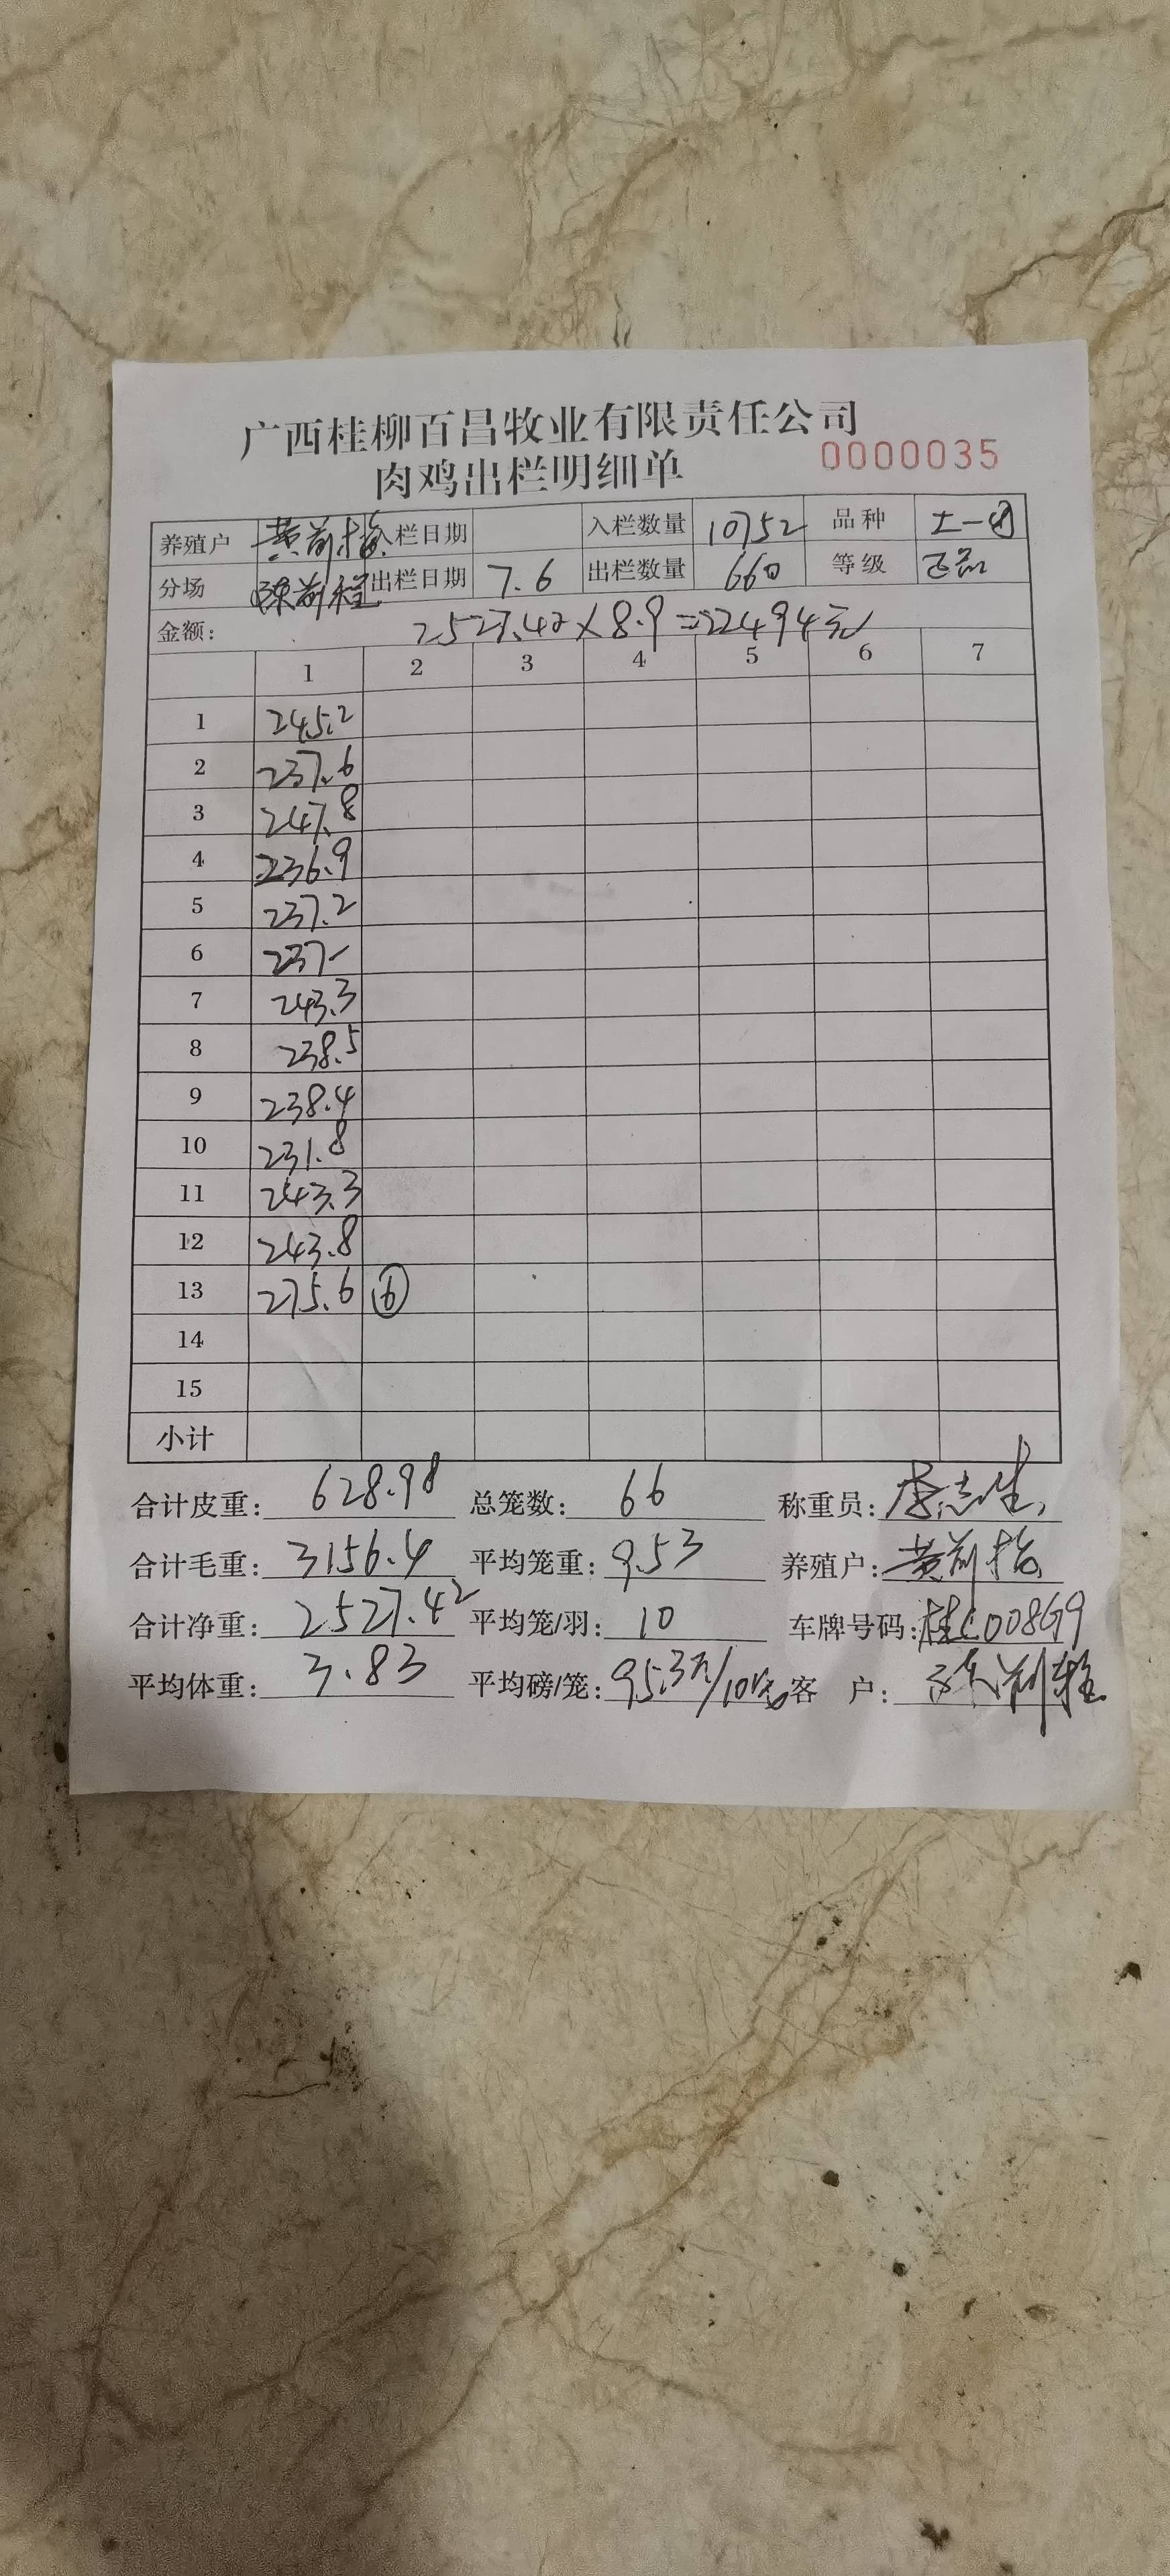 广西桂柳百昌牧业有限责任公司
肉鸡出栏明细单 0000035
养殖户 黄前指 入栏日期 入栏数量 10752 品种 土一
分场 陈前程 出栏日期 7.6 出栏数量 660 等级 正品
金额: 2527.42×8.9=22494元
1 2 3 4 5 6 7
1 245.2
2 237.6
3 247.8
4 236.9
5 237.2
6 237-
7 243.3
8 238.5
9 238.4
10 231.8
11 243.3
12 243.8
13 275.6 ⑥
14
15
小计
合计皮重: 628.98 总笼数: 66 称重员: 李志生
合计毛重: 3156.4 平均笼重: 9.53 养殖户: 黄前指
合计净重: 2527.42 平均笼/羽: 10 车牌号码: 桂C008G9
平均体重: 3.83 平均磅/笼: 95.3斤/10 客 户: 陈前程